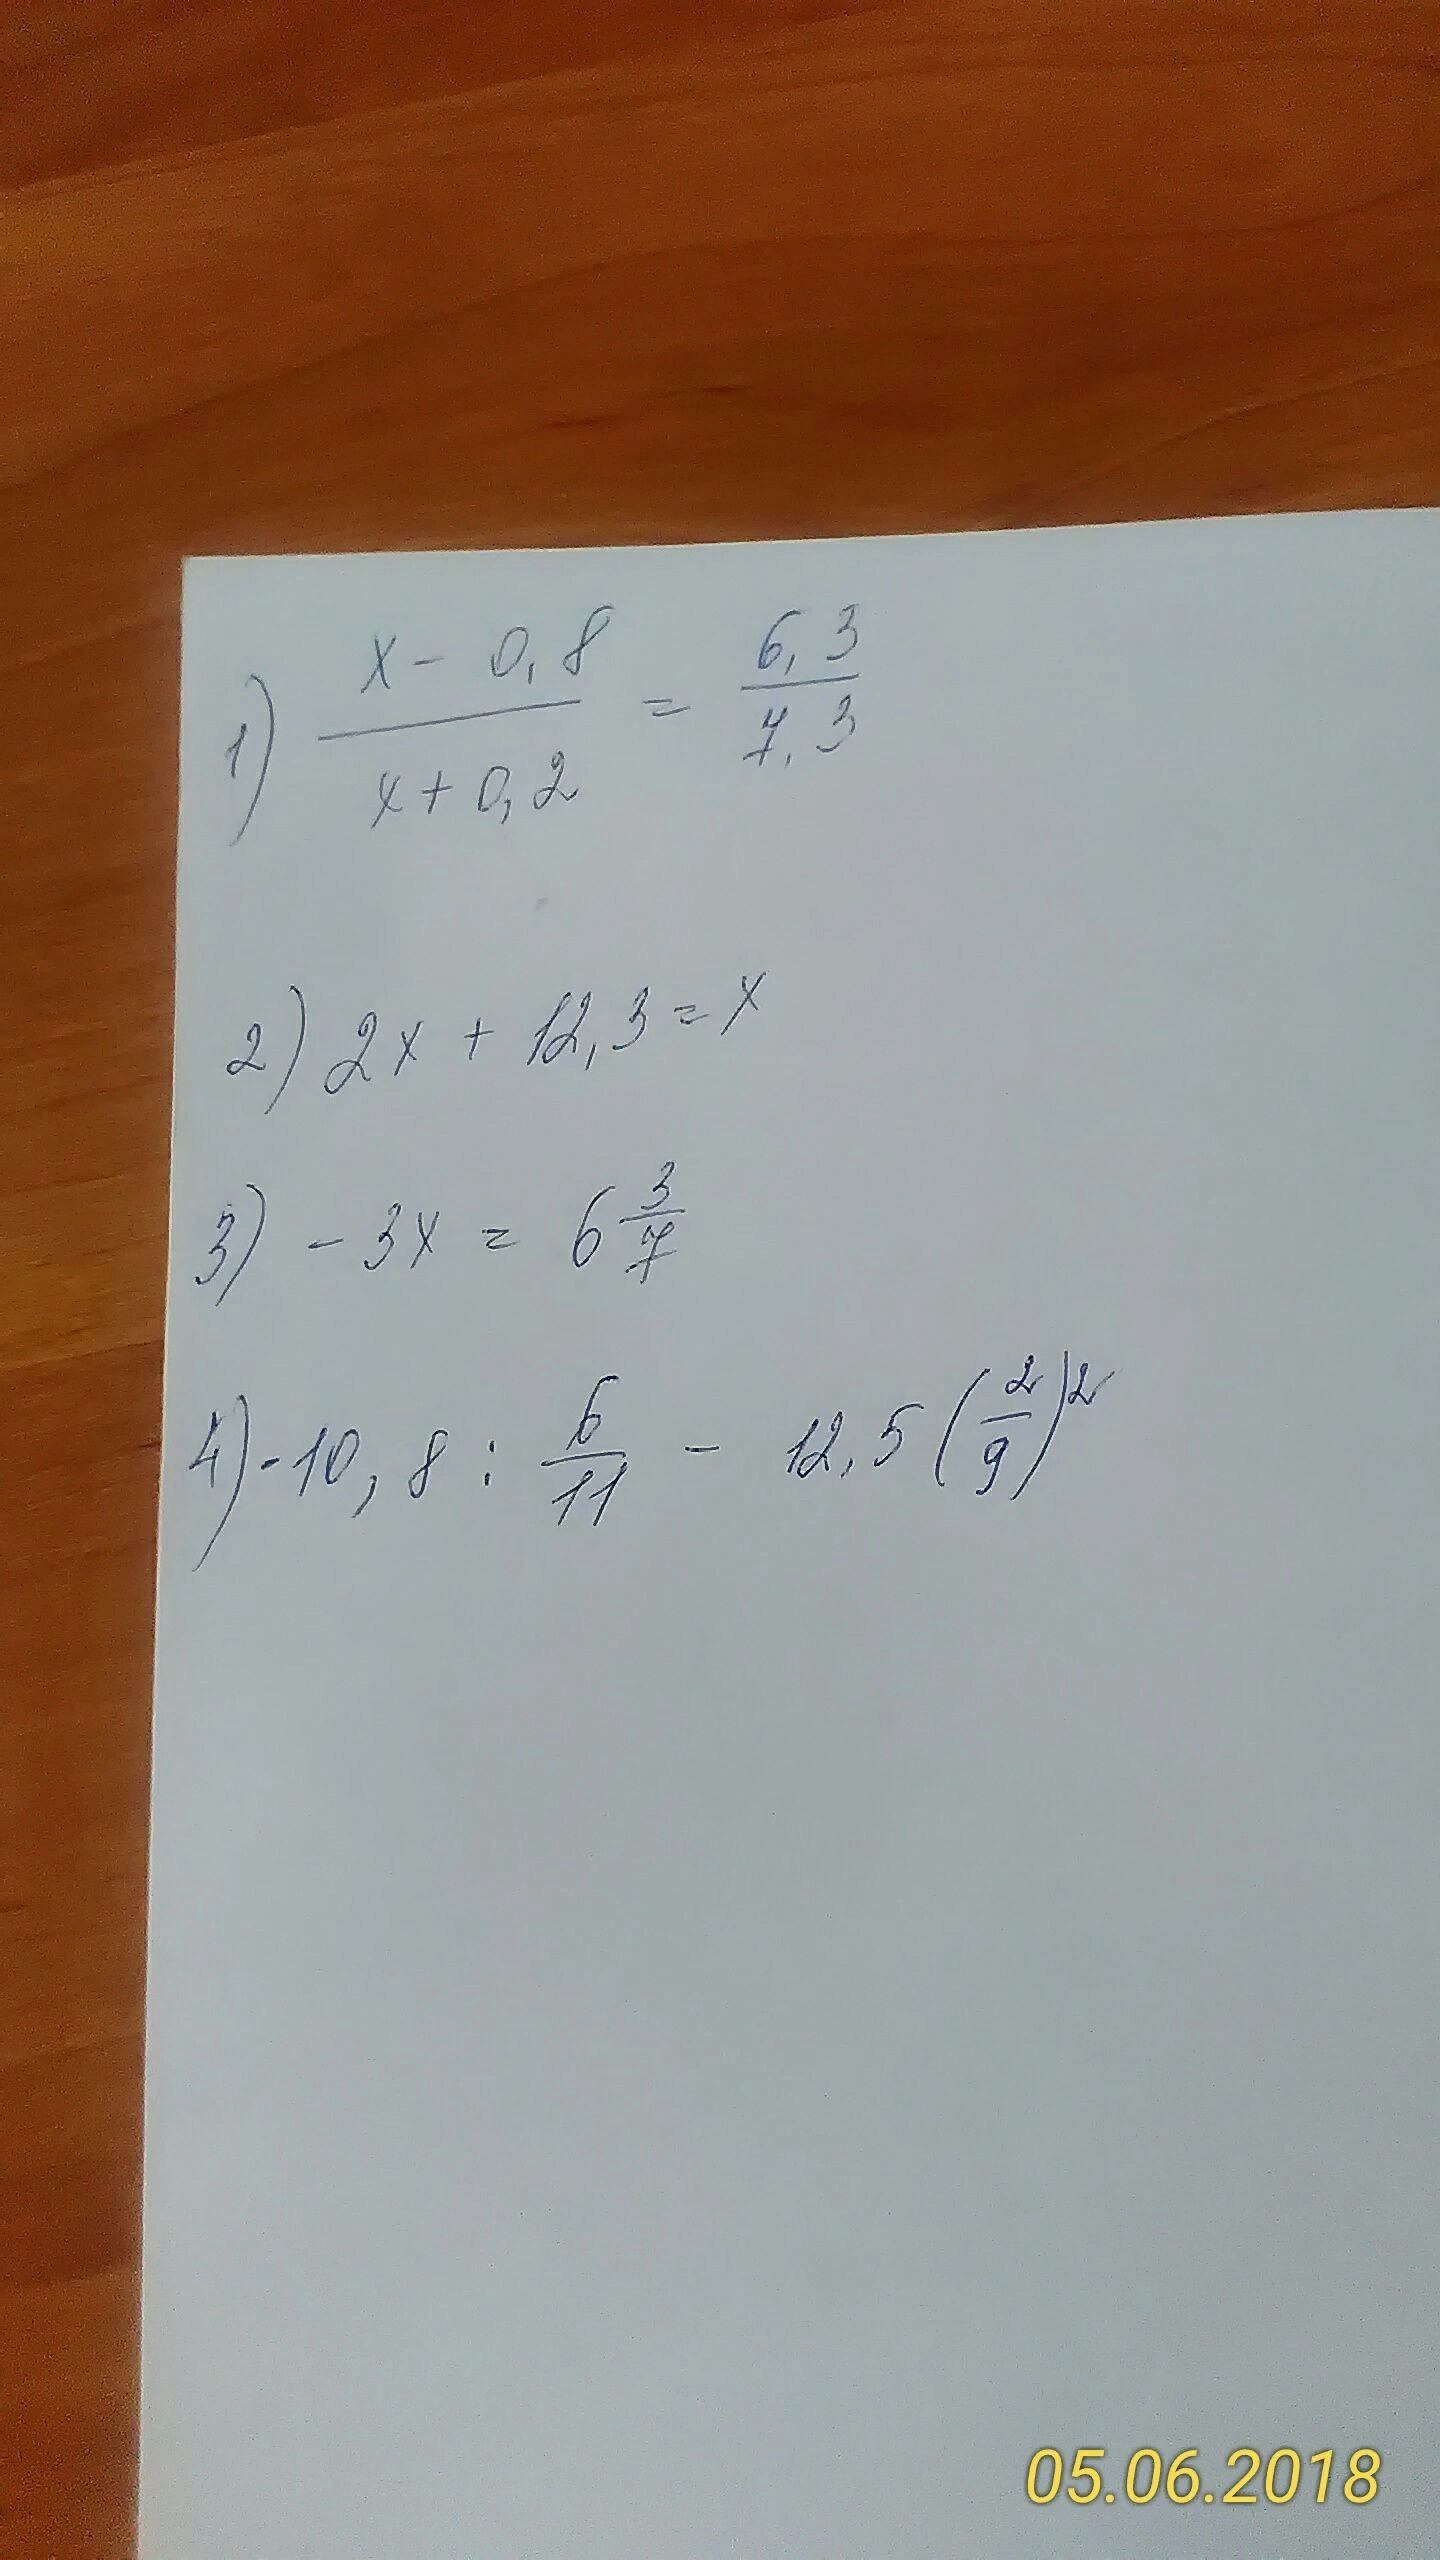 1) x - 0,8 / x + 0,2 = 6,3 / 7,3
2) 2x + 12,3 = x
3) - 3x = 6 3/7
4) - 10,8 : 6/11 - 12,5 (2/9)²
05.06.2018